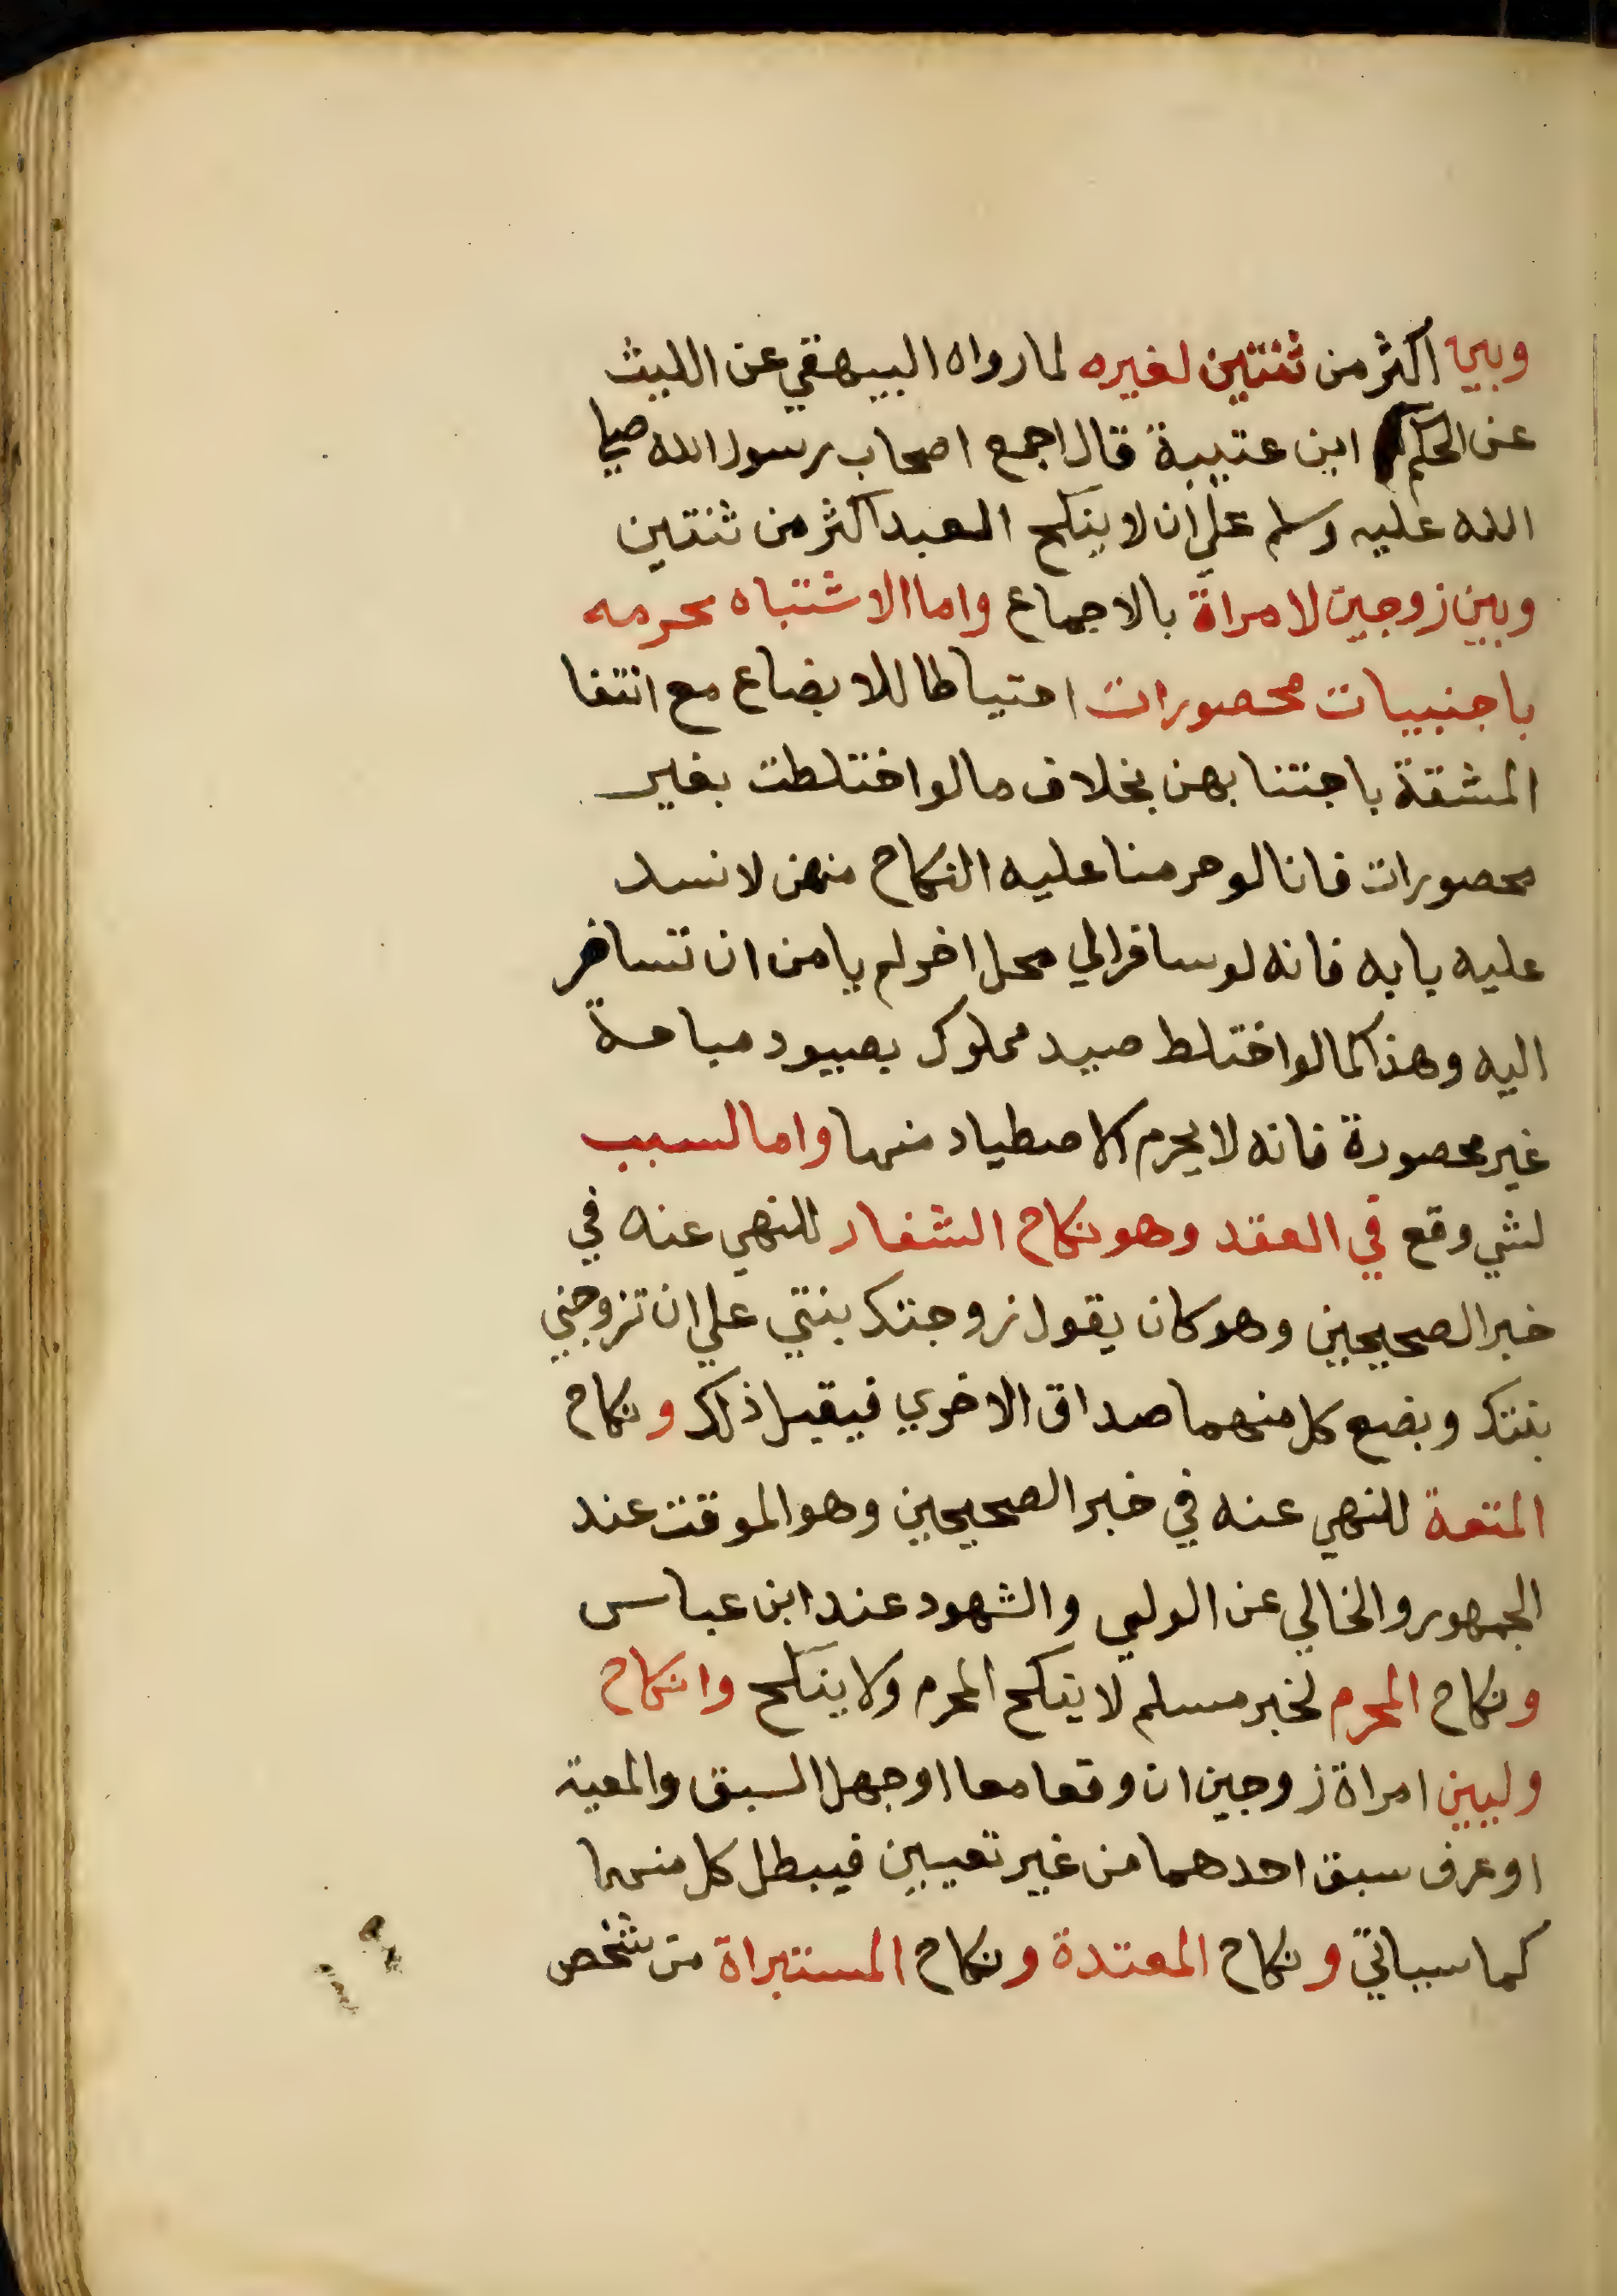 وبين اكثر من ثنتين لغيره لما رواه البيهقي عن الليث
عن الحكم ابن عتيبة قال اجمع اصحاب رسول الله صلي
الله عليه وسلم علي ان لا ينكح العبد اكثر من ثنتين
وبين زوجين لامراة بالاجماع واما الاشتباه محرمه
باجنبيات محصورات احتياطا للابضاع مع انتفا
المشقة باجتنابهن بخلاف ما لو اختلطت بغير
محصورات فانا لو حرمنا عليه النكاح منهن لانسد
عليه بابه فانه لو سافر الي محل اخر لم يامن ان تسافر
اليه وهذا كما لو اختلط صيد مملوك بصيود مباحة
غير محصورة فانه لا يحرم الاصطياد منها واما لسبب
لشي وقع في العقد وهو نكاح الشغار للنهي عنه في
خبر الصحيحين وهو كان يقول زوجتك بنتي علي ان تزوجني
بنتك وبضع كل منهما صداق الاخري فيقبل ذلك ونكاح
المتعة للنهي عنه في خبر الصحيحين وهو الموقت عند
الجمهور والخالي عن الولي والشهود عند ابن عباس
ونكاح المحرم لخبر مسلم لا ينكح المحرم ولا ينكح وانكاح
وليين امراة زوجين ان وقعا معا او جهل السبق والمعية
او عرف سبق احدهما من غير تعيين فيبطل كل منهما
كما سياتي ونكاح المعتدة ونكاح المستبراة من شخص